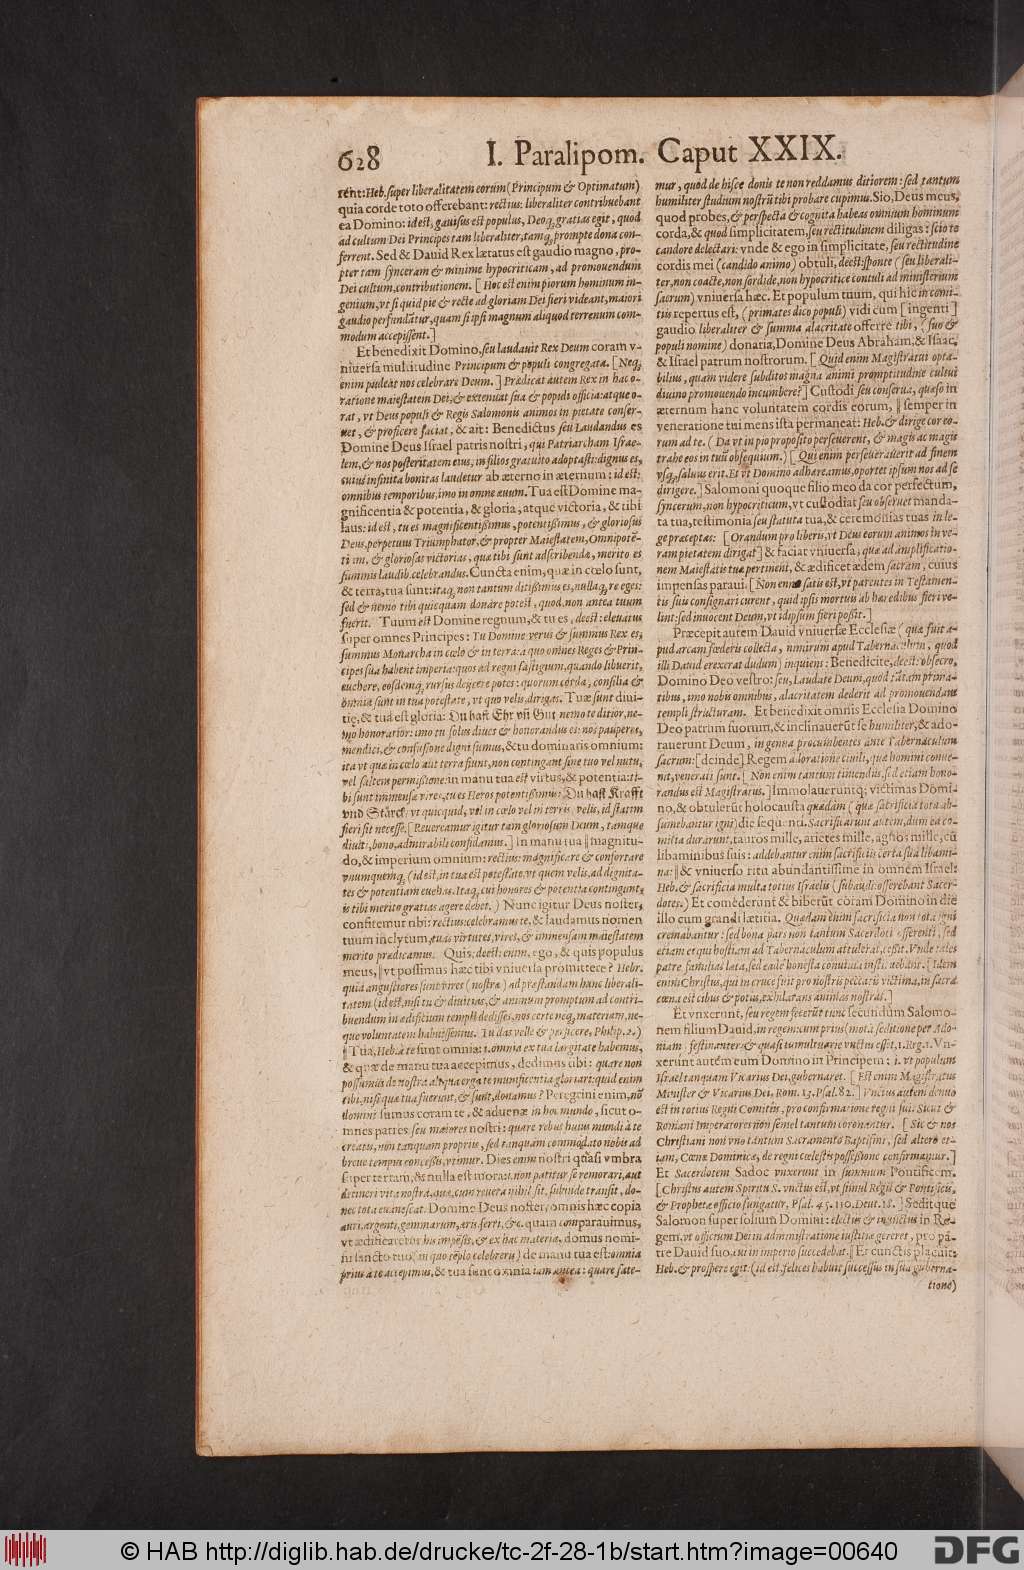 628
I. Paralipom. Caput XXIX.
rent: Heb. super liberalitatem eorum (Principum & Optimatum)
quia corde toto offerebant: rectius: liberaliter contribuebant
ea Domino: id est, gavisus est populus, Deoq; gratias egit, quod
ad cultum Dei Principes tam liberaliter, tamq; prompte dona con-
ferrent. Sed & Dauid Rex lætatus est gaudio magno, pro-
pter tam synceram & minime hypocriticam, ad promouendum
Dei cultum, contributionem. [Hoc est enim piorum hominum in-
genium, vt si quid pie & recte ad gloriam Dei fieri videant, maiori
gaudio perfundãtur, quam si ipsi magnum aliquod terrenum com-
modum accepissent.]
Et benedixit Domino, seu laudauit Rex Deum coram v-
niuersa multitudine Principum & populi congregata. [Neq;
enim pudeat nos celebrare Deum.] Prædicat autem Rex in hac o-
ratione maiestatem Dei, & extenuat sua & populi officia: atque o-
rat, vt Deus populi & Regis Salomonis animos in pietate conser-
uet, & proficere faciat, & ait: Benedictus seu Laudandus es
Domine Deus Israel patris nostri, qui Patriarcham Israe-
lem, & nos posteritatem eius, in filios gratuito adoptasti: dignus es,
cuius infinita bonitas laudetur ab æterno in æternum: id est:
omnibus temporibus, imo in omne æuum. Tua est Domine ma-
gnificentia & potentia, & gloria, atque victoria, & tibi
laus: id est, tu es magnificentissimus, potentissimus, & gloriosus
Deus, perpetuus Triumphator, & propter Maiestatem, Omnipotẽ-
tiam, & gloriosas victorias, quæ tibi sunt adscribendæ, merito es
summis laudib. celebrandus. Cuncta enim, quæ in cœlo sunt,
& terra, tua sunt: itaq; non tantum ditissimus es, nullaq; re eges:
sed & nemo tibi quicquam donare potest, quod non antea tuum
fuerit. Tuum est Domine regnum, & tu es, deest: eleuatus
super omnes Principes: Tu Domine verus & summus Rex es,
summus Monarcha in cœlo & in terra: a quo omnes Reges & Prin-
cipes sua habent imperia: quos ad regni fastigium, quando libuerit,
euehere, eosdemq; rursus deijcere potes: quorum corda, consilia &
omnia sunt in tua potestate, vt quo velis, dirigas. Tuæ sunt diui-
tiæ, & tua est gloria: Du hast Ehr vñ Gut nemo te ditior, ne-
mo honoratior: imo tu solus diues & honorandus es: nos pauperes,
mendici, & confusione digni sumus, & tu dominaris omnium:
ita vt quæ in cœlo aut terra fiunt, non contingant sine tuo vel nutu,
vel saltem permissione: in manu tua est virtus, & potentia: ti-
bi sunt immensæ vires, tu es Heros potentissimus: Du hast Krafft
vnd Stärck: vt quicquid, vel in cœlo vel in terris, velis, id statim
fieri sit necesse. [Reuereamur igitur tam gloriosum Deum, tamque
diuiti, bono, admirabili confidamus.] In manu tua ‖ magnitu-
do, & imperium omnium: rectius: magnificare & confortare
vnumquemq; (id est, in tua est potestate, vt quem velis, ad dignita-
tes & potentiam euehas. Itaq; cui honores & potentia contingunt,
is tibi merito gratias agere debet.) Nunc igitur Deus noster,
confitemur tibi: rectius: celebramus te, & laudamus nomen
tuum inclytum, tuas virtutes, vires, & immensam maiestatem
merito prædicamus. Quis, deest: enim, ego, & quis populus
meus, ‖ vt possimus hæc tibi vniuersa promittere? Hebr.
quia angustiores sunt vires (nostræ) ad præstandam hanc liberali-
tatem (id est, nisi tu & diuitias, & animum promptum ad contri-
buendum in ædificium templi dedisses, nos certe neq; materiam, ne-
que voluntatem habuissemus. Tu das velle & perficere, Philip. 2.)
‖ Tua, Heb. à te sunt omnia: i. omnia ex tua largitate habemus,
& quæ de manu tua accepimus, dedimus tibi: quare non
possumus de nostra aliqua erga te munificentia gloriari: quid enim
tibi, nisi quæ tua fuerunt, & sunt, donamus? Peregrini enim, nõ
domini sumus coram te, & aduenæ in hoc mundo, sicut o-
mnes patres seu maiores nostri: quare rebus huius mundi à te
creatis, non tanquam proprijs, sed tanquam commodato nobis ad
breue tempus concessis, vtimur. Dies enim nostri quasi vmbra
super terram, & nulla est mora: non patitur se remorari, aut
detineri vita nostra, quæ, cum reuera nihil sit, subinde transit, do-
nec tota euanescat. Domine Deus noster, omnis hæc copia
auri, argenti, gemmarum, æris ferri, &c. quam comparauimus,
vt ædificaretur his impẽsis, & ex hac materia, domus nomi-
ni sancto tuo, (in quo tẽplo celebreris) de manu tua est: omnia
prius à te accepimus, & tua sunt omnia iam antea: quare fate-
mur, quod de hisce donis te non reddamus ditiorem: sed tantum
humiliter studium nostrũ tibi probare cupimus. Scio, Deus meus,
quod probes, & perspecta & cognita habeas omnium hominum
corda, & quod simplicitatem, seu rectitudinem diligas: scio te
candore delectari: vnde & ego in simplicitate, seu rectitudine
cordis mei (candido animo) obtuli, deest: sponte (seu liberali-
ter, non coacte, non sordide, non hypocritice contuli ad ministerium
sacrum) vniuersa hæc. Et populum tuum, qui hîc in comi-
tiis repertus est, (primates dico populi) vidi cum [ingenti]
gaudio liberaliter & summa alacritate offerre tibi, (suo &
populi nomine) donaria, Domine Deus Abraham, & Isaac,
& Israel patrum nostrorum. [Quid enim Magistratus opta-
bilius, quam videre subditos magna animi promptitudine cultui
diuino promouendo incumbere?] Custodi seu conserua, quæso in
æternum hanc voluntatem cordis eorum, ‖ semper in
veneratione tui mens ista permaneat: Heb. & dirige cor eo-
rum ad te. (Da vt in pio proposito perseuerent, & magis ac magis
trahe eos in tuũ obsequium.) [Qui enim perseuerauerit ad finem
vsq; saluus erit. Et vt Domino adhæreamus, oportet ipsum nos ad se
dirigere.] Salomoni quoque filio meo da cor perfectum,
syncerum, non hypocriticum, vt custodiat seu obseruet manda-
ta tua, testimonia seu statuta tua, & ceremonias tuas in le-
ge præceptas: [Orandum pro liberis, vt Deus eorum animos in ve-
ram pietatem dirigat] & faciat vniuersa, quæ ad amplificatio-
nem Maiestatis tuæ pertinent, & ædificet ædem sacram, cuius
impensas paraui. [Non enim satis est, vt parentes in Testamen-
tis suis consignari curent, quid ipsis mortuis ab hæredibus fieri ve-
lint: sed inuocent Deum, vt id ipsum fieri possit.]
Præcepit autem Dauid vniuersæ Ecclesiæ (quæ fuit a-
pud arcam fœderis collecta, nimirum apud Tabernaculum, quod
illi Dauid erexerat dudum) inquiens: Benedicite, deest: obsecro,
Domino Deo vestro: seu, Laudate Deum, quod tantem prima-
tibus, imo nobis omnibus, alacritatem dederit ad promouendam
templi structuram. Et benedixit omnis Ecclesia Domino
Deo patrum suorum, & inclinauerũt se humiliter, & ado-
rauerunt Deum, in genua procumbentes ante Tabernaculum
sacrum: [deinde] Regem adoratione ciuili, quæ homini conue-
nit, venerati sunt. [Non enim tantum timendus, sed etiam hono-
randus est Magistratus.] Immolaueruntq; victimas Domi-
no, & obtulerũt holocausta quædam (quæ sacrificia tota ab-
sumebantur igni) die sequenti. Sacrificarunt autem, dum ea co-
mitia durarunt, tauros mille, arietes mille, agnos mille, cũ
libaminibus suis: addebantur enim sacrificiis certa sua libami-
na: ‖ & vniuerso ritu abundantissime in omnem Israel:
Heb. & sacrificia multa totius Israelis (subaudi: offerebant Sacer-
dotes.) Et comederunt & biberũt coram Domino in die
illo cum grandi lætitia. Quædam enim sacrificia non tota igni
cremabantur: sed bona pars non tantum Sacerdoti offerenti, sed
etiam ei qui hostiam ad Tabernaculum attulerat, cessit. Vnde tales
patres familias læta, sed eade honesta conuiuia instituebant. [Idem
enim Christus, qui in cruce fuit pro nostris peccatis victima, in sacra
cœna est cibus & potus, exhilarans animas nostras.]
Et vnxerunt, seu regem fecerũt tunc secundùm Salomo-
nem filium Dauid, in regem: cum prius (motâ seditione per Ado-
niam) festinanter & quasi tumultuarie vnctus esset, 1. Reg. 1. Vn-
xerunt autem eum Domino in Principem: i. vt populum
Israel tanquam Vicarius Dei, gubernaret. [Est enim Magistratus
Minister & Vicarius Dei, Rom. 13. Psal. 82.] Vnctus autem denuo
est in totius Regni Comitiis, pro confirmatione regni sui: Sicut &
Romani Imperatores non semel tantum coronantur. [Sic & nos
Christiani non vno tantum Sacramento Baptismi, sed altero et-
iam, Cœnæ Dominicæ, de regni cœlestis possessione confirmamur.]
Et Sacerdotem Sadoc vnxerunt in summum Pontificem.
[Christus autem Spiritu S. vnctus est, vt simul Regis & Pontificis,
& Prophetæ officio fungatur, Psal. 45. 110. Deut. 18.] Seditque
Salomon super solium Domini: electus & inunctus in Re-
gem, vt officium Dei in administratione iustitiæ gereret, pro pa-
tre Dauid suo, cui in imperio succedebat. ‖ Et cunctis placuit:
Heb. & prospere egit: (id est, felices habuit successus in sua guberna-
tione)
© HAB http://diglib.hab.de/drucke/tc-2f-28-1b/start.htm?image=00640
DFG